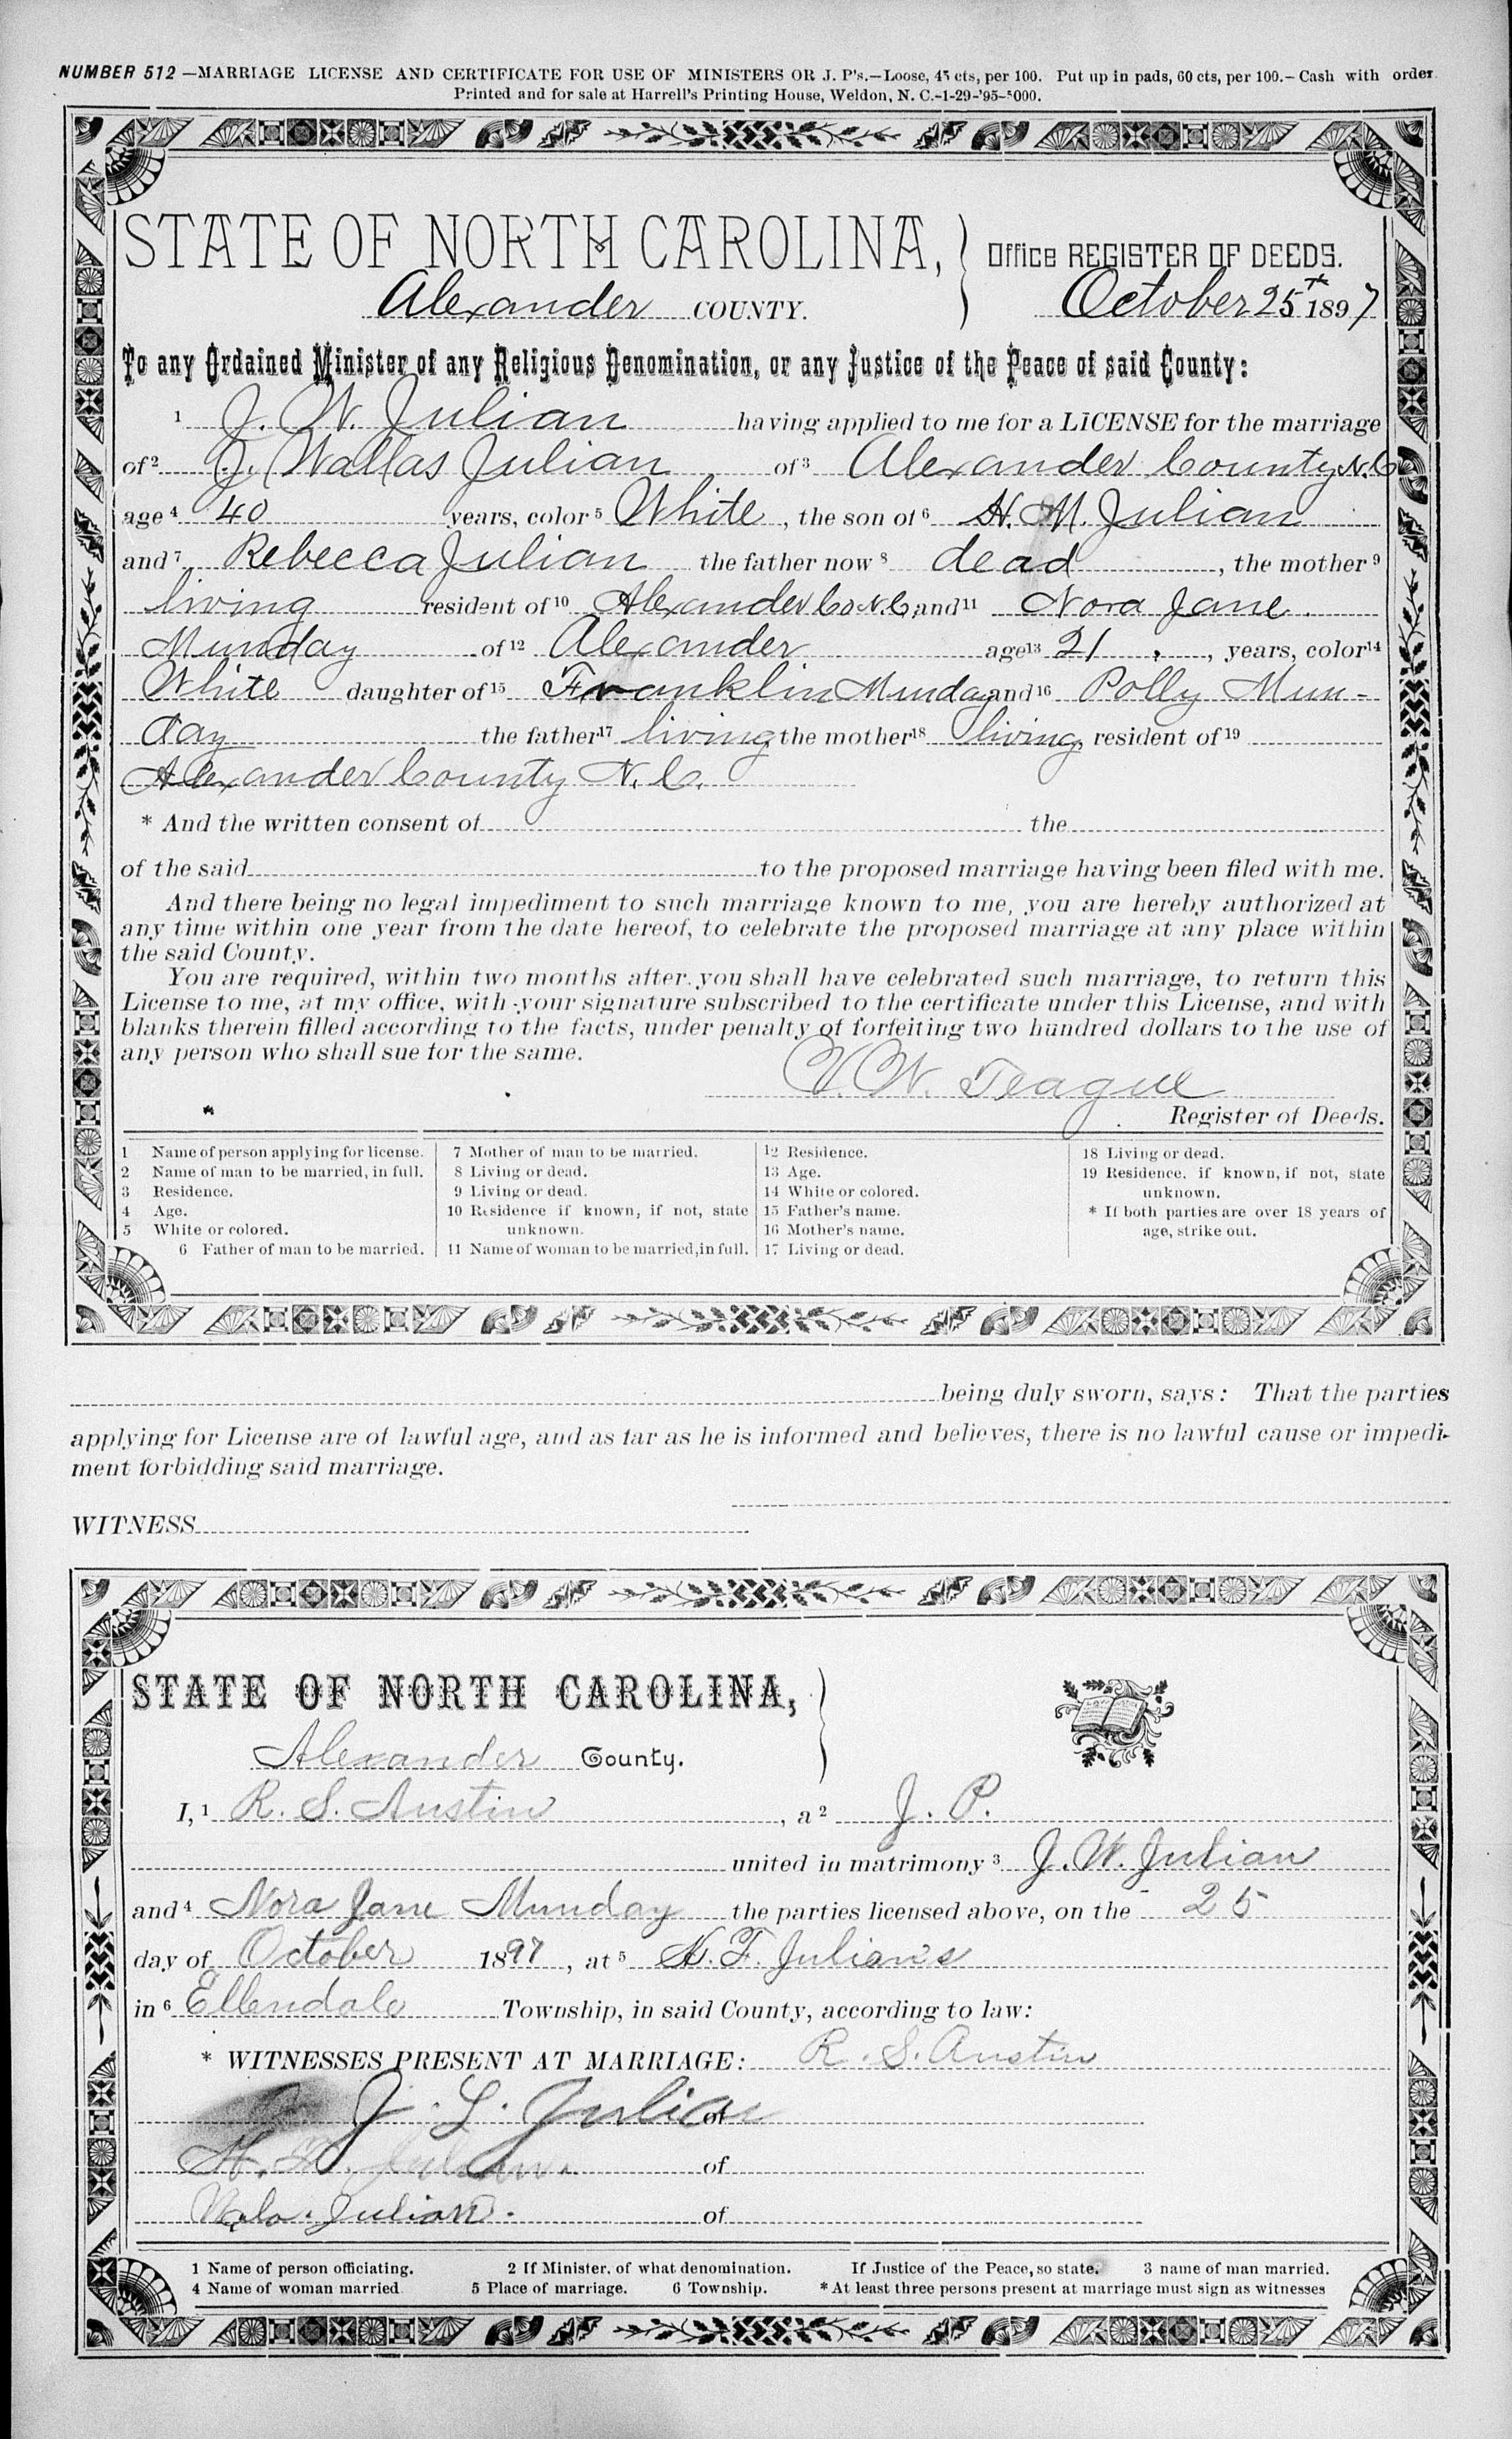 NUMBER 512 —MARRIAGE LICENSE AND CERTIFICATE FOR USE OF MINISTERS OR J. P's.—Loose, 45 cts, per 100. Put up in pads, 60 cts, per 100.—Cash with order
Printed and for sale at Harrell's Printing House, Weldon, N. C.-1-29-'95-5000.
STATE OF NORTH CAROLINA, } Office REGISTER OF DEEDS.
Alexander COUNTY. October 25th 1897
To any Ordained Minister of any Religious Denomination, or any Justice of the Peace of said County:
1 J. W. Julian having applied to me for a LICENSE for the marriage
of 2 J. Wallas Julian of 3 Alexander County N.C
age 4 40 years, color 5 White, the son of 6 H. M. Julian
and 7 Rebecca Julian the father now 8 dead, the mother 9
living resident of 10 Alexander Co N.C, and 11 Nora Jane
Munday of 12 Alexander age 13 21, years, color 14
White daughter of 15 Franklin Munday and 16 Polly Mun-
day the father 17 living the mother 18 living, resident of 19
Alexander County N. C.
* And the written consent of the
of the said to the proposed marriage having been filed with me.
And there being no legal impediment to such marriage known to me, you are hereby authorized at
any time within one year from the date hereof, to celebrate the proposed marriage at any place within
the said County.
You are required, within two months after you shall have celebrated such marriage, to return this
License to me, at my office, with your signature subscribed to the certificate under this License, and with
blanks therein filled according to the facts, under penalty of forfeiting two hundred dollars to the use of
any person who shall sue for the same.
V. W. Teague
Register of Deeds.
1 Name of person applying for license.
2 Name of man to be married, in full.
3 Residence.
4 Age.
5 White or colored.
6 Father of man to be married.
7 Mother of man to be married.
8 Living or dead.
9 Living or dead.
10 Residence if known, if not, state
unknown.
11 Name of woman to be married, in full.
12 Residence.
13 Age.
14 White or colored.
15 Father's name.
16 Mother's name.
17 Living or dead.
18 Living or dead.
19 Residence, if known, if not, state
unknown.
* If both parties are over 18 years of
age, strike out.
being duly sworn, says: That the parties
applying for License are of lawful age, and as far as he is informed and believes, there is no lawful cause or impedi-
ment forbidding said marriage.
WITNESS
STATE OF NORTH CAROLINA, }
Alexander County.
I, 1 R. S. Austin, a 2 J. P.
united in matrimony 3 J. W. Julian
and 4 Nora Jane Munday the parties licensed above, on the 25
day of October 1897, at 5 H. F. Julian's
in 6 Ellendale Township, in said County, according to law:
* WITNESSES PRESENT AT MARRIAGE: R. S. Austin
J. L. Julian of
H. Julian. of
Julian. of
1 Name of person officiating. 2 If Minister, of what denomination. If Justice of the Peace, so state. 3 name of man married.
4 Name of woman married. 5 Place of marriage. 6 Township. * At least three persons present at marriage must sign as witnesses